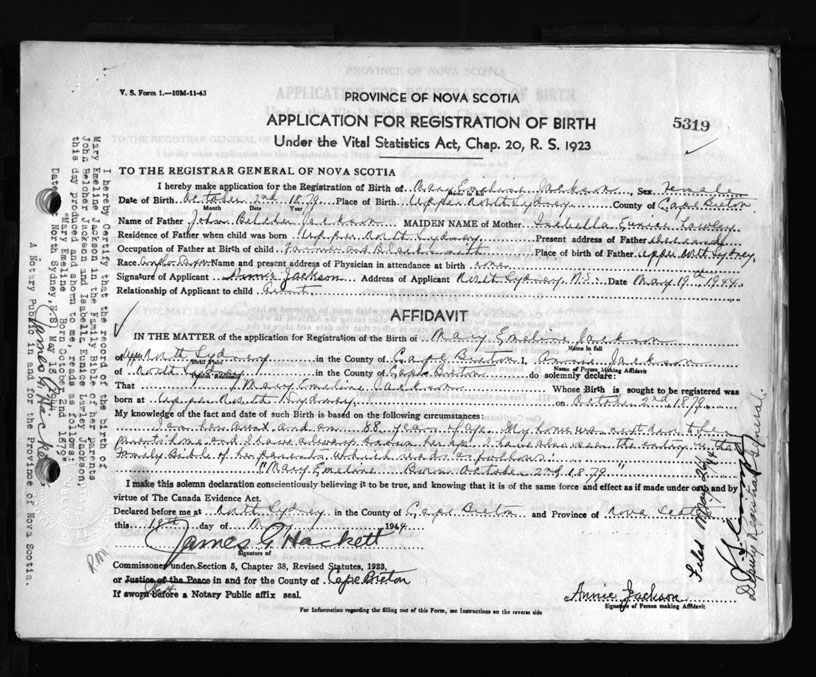 V. S. Form 1.—10M-11-43
PROVINCE OF NOVA SCOTIA
5319
APPLICATION FOR REGISTRATION OF BIRTH
Under the Vital Statistics Act, Chap. 20, R. S. 1923
TO THE REGISTRAR GENERAL OF NOVA SCOTIA
I hereby make application for the Registration of Birth of Mary Emeline Jackson, Sex Female
Date of Birth October 2nd 1879 Place of Birth Upper North Sydney County of Cape Breton
Month Date Year
Name of Father John Belcher Jackson MAIDEN NAME of Mother Isabella Eunice Lawley
Residence of Father when child was born Upper North Sydney Present address of Father deceased
Occupation of Father at Birth of child Farmer and Blacksmith Place of birth of Father Upper North Sydney
Race Anglo-Saxon Name and present address of Physician in attendance at birth none
Signature of Applicant Annie Jackson Address of Applicant North Sydney N.S. Date May 19th 1944
Relationship of Applicant to child Aunt
AFFIDAVIT
IN THE MATTER of the application for Registration of the Birth of Mary Emeline Jackson
Name in full
of Upper North Sydney in the County of Cape Breton I, Annie Jackson
Name of Person Making Affidavit
of North Sydney in the County of Cape Breton do solemnly declare:
That Mary Emeline Jackson Whose Birth is sought to be registered was
born at Upper North Sydney on October 2nd, 1879
My knowledge of the fact and date of such Birth is based on the following circumstances:
I am her aunt and am 88 years of age. My home was next door to her
parents home and I have always known her age. I have also seen the entry in the
Family Bible of her parents which reads as follows:
"Mary Emeline Born October 2nd 1879."
I make this solemn declaration conscientiously believing it to be true, and knowing that it is of the same force and effect as if made under oath and by
virtue of The Canada Evidence Act.
Declared before me at North Sydney in the County of Cape Breton and Province of Nova Scotia
this 19th day of May 1944
James G. Hackett
Signature of
Commissoner under Section 5, Chapter 38, Revised Statutes, 1923,
or Justice of the Peace in and for the County of Cape Breton
If sworn before a Notary Public affix seal.
Annie Jackson
Signature of Person making Affidavit
For Information regarding the filling out of this Form, see Instructions on the reverse side
I hereby Certify that the record of the birth of
Mary Emeline Jackson in the Family Bible of her parents
John Belcher Jackson and Isabella Eunice Lawley Jackson,
this day produced and shown to me, reads as follows:
"Mary Emeline Born October 2nd 1879"
Dated at North Sydney, N.S. May 19 1944
James G. Hackett
A Notary Public in and for the Province of Nova Scotia.
Filed May 26/44
Deputy Registrar General.